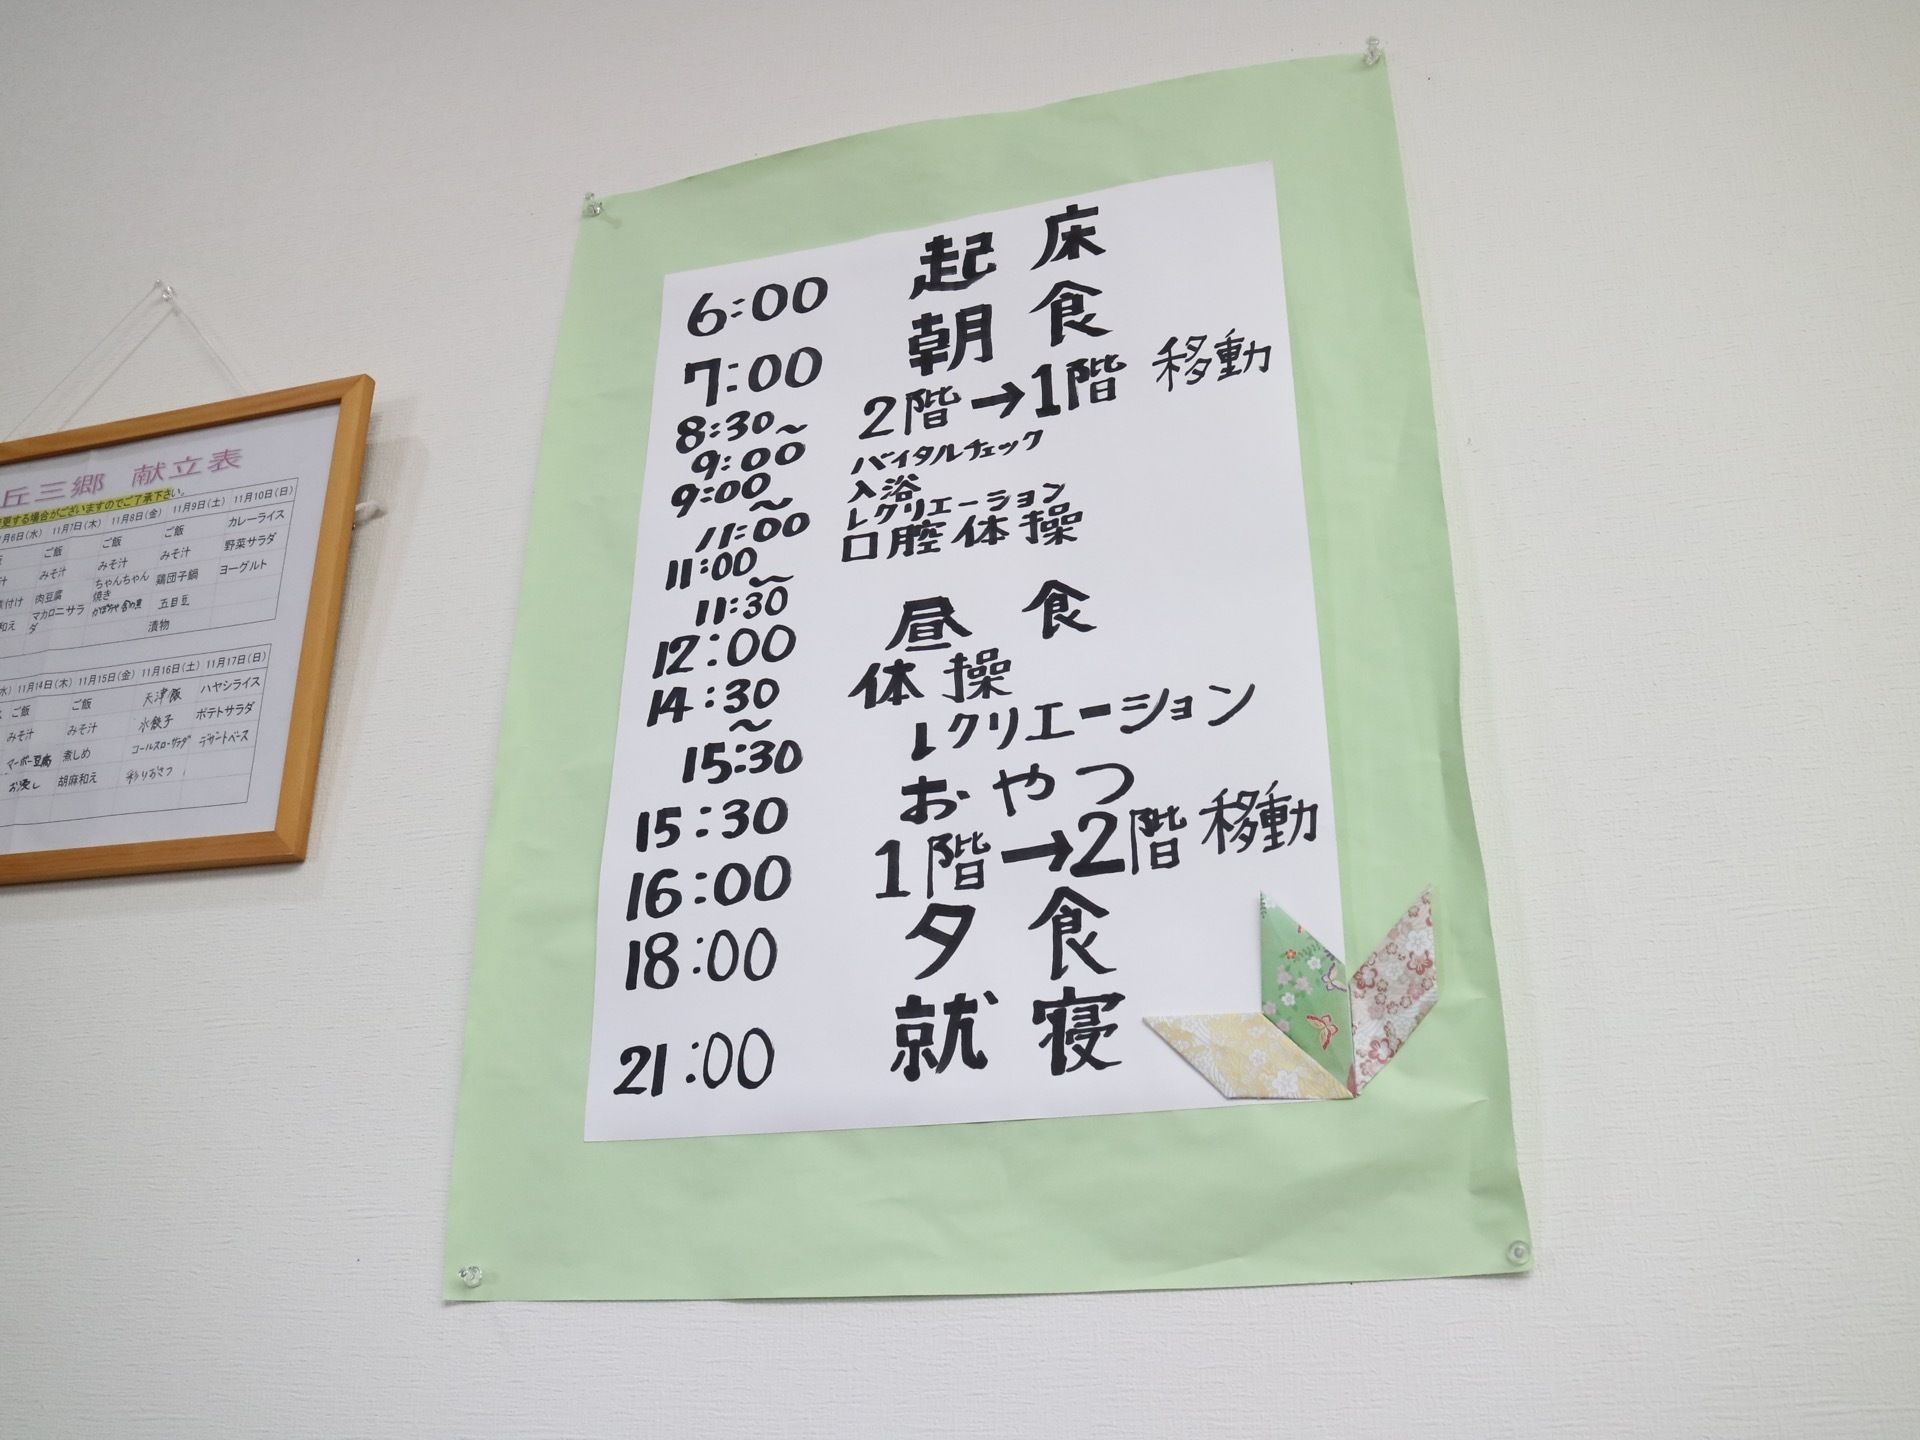 6:00 起床
7:00 朝食
8:30～ 2階→1階 移動
9:00 バイタルチェック
9:00～ 入浴
11:00 レクリエーション
11:00～ 口腔体操
11:30
12:00 昼食
14:30～ 体操
15:30 レクリエーション
15:30 おやつ
16:00 1階→2階 移動
18:00 夕食
21:00 就寝
丘三郷 献立表
更する場合がございますのでご了承下さい。
月6日(水) 11月7日(木) 11月8日(金) 11月9日(土) 11月10日(日)
ご飯 ご飯 ご飯 カレーライス
みそ汁 みそ汁 みそ汁 野菜サラダ
付け 肉豆腐 ちゃんちゃん焼き 鶏団子鍋 ヨーグルト
和え マカロニサラダ 五目豆
漬物
水) 11月14日(木) 11月15日(金) 11月16日(土) 11月17日(日)
ご飯 ご飯 天津飯 ハヤシライス
みそ汁 みそ汁 水餃子 ポテトサラダ
マーボー豆腐 煮しめ コールスローサラダ デザートベース
お浸し 胡麻和え 彩りおさつ